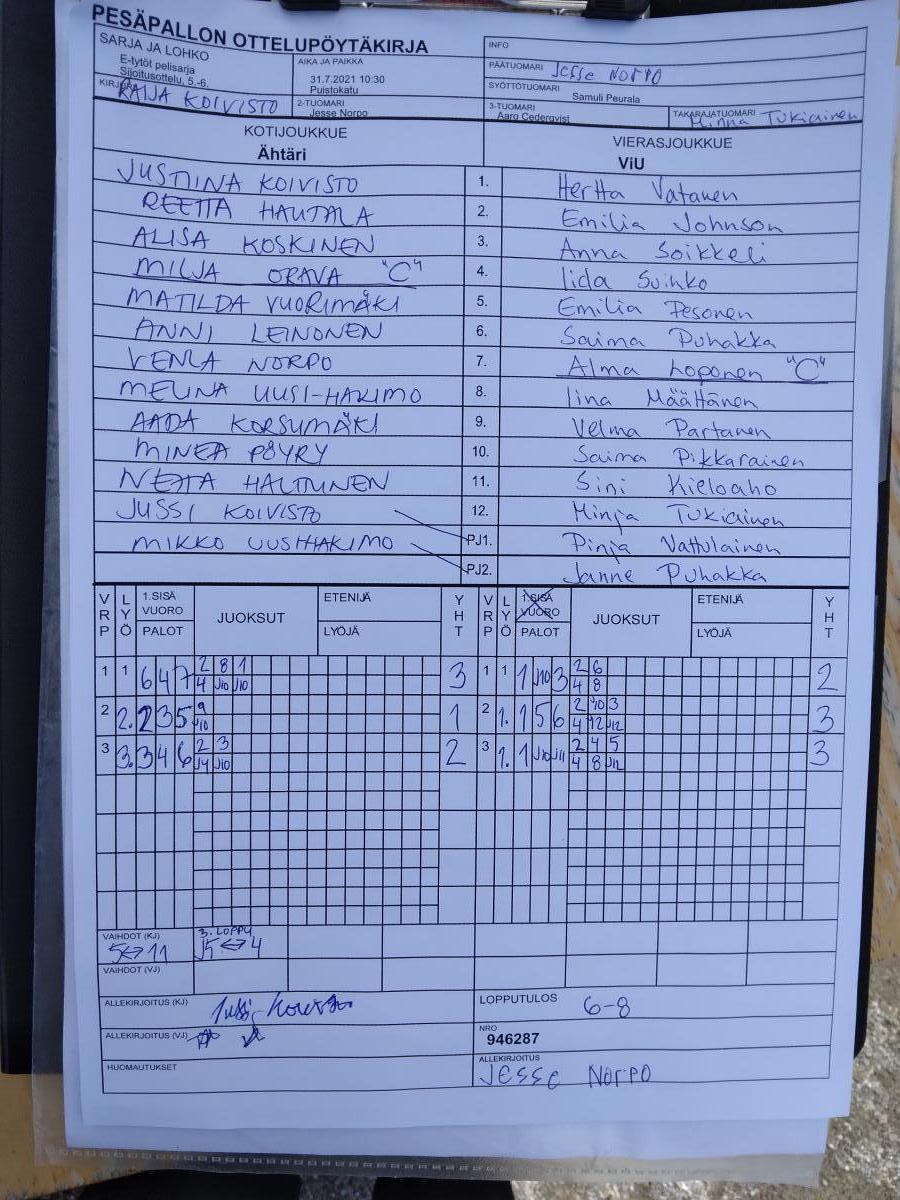 PESÄPALLON OTTELUPÖYTÄKIRJA
SARJA JA LOHKO
E-tytöt pelisarja
Sijoitusottelu, 5.-6.
KIRJURI RAIJA KOIVISTO
AIKA JA PAIKKA
31.7.2021 10:30
Puistokatu
2-TUOMARI
Jesse Norpo
INFO
PÄÄTUOMARI Jesse Norpo
SYÖTTÖTUOMARI Samuli Peurala
3-TUOMARI
Aaro Cederqvist
TAKARAJATUOMARI Minna Tukiainen
KOTIJOUKKUE
Ähtäri
VIERASJOUKKUE
ViU
JUSTIINA KOIVISTO 1. Hertta Vatanen
REETTA HAUTALA 2. Emilia Johnson
ALISA KOSKINEN 3. Anna Soikkeli
MILJA ORAVA "C" 4. Iida Suihko
MATILDA VUORIMÄKI 5. Emilia Pesonen
ANNI LEINONEN 6. Saima Puhakka
VENLA NORPO 7. Alma Loponen "C"
MELINA UUSI-HAKIMO 8. Iina Määttänen
AADA KORSUMÄKI 9. Velma Partanen
MINEA PÖYRY 10. Saima Pikkarainen
NEITA HALTTUNEN 11. Sini Kieloaho
JUSSI KOIVISTO 12. Minja Tukiainen
MIKKO UUSIHAKIMO PJ1. Pinja Vattulainen
PJ2. Janne Puhakka
VRP LYÖ 1.SISÄ VUORO PALOT JUOKSUT ETENIJÄ LYÖJÄ YHT
VRP LYÖ 1.SISÄ VUORO PALOT JUOKSUT ETENIJÄ LYÖJÄ YHT
1 1 6 4 7 2 8 1 3 1 1 1 J10 3 2 6 2
4 J10 J10 4 8
2 2. 2 3 5 9 1 2 1. 1 5 6 2 J10 3 3
J10 4 12 J12
3 3. 3 4 6 2 3 2 3 1. 1 J10 J11 2 4 5 3
J4 J10 4 8 J12
VAIHDOT (KJ)
5↔11
3. LOPPU
J5↔4
VAIHDOT (VJ)
ALLEKIRJOITUS (KJ) Jussi Koivisto
LOPPUTULOS 6-8
ALLEKIRJOITUS (VJ)
NRO
946287
HUOMAUTUKSET
ALLEKIRJOITUS
Jesse Norpo